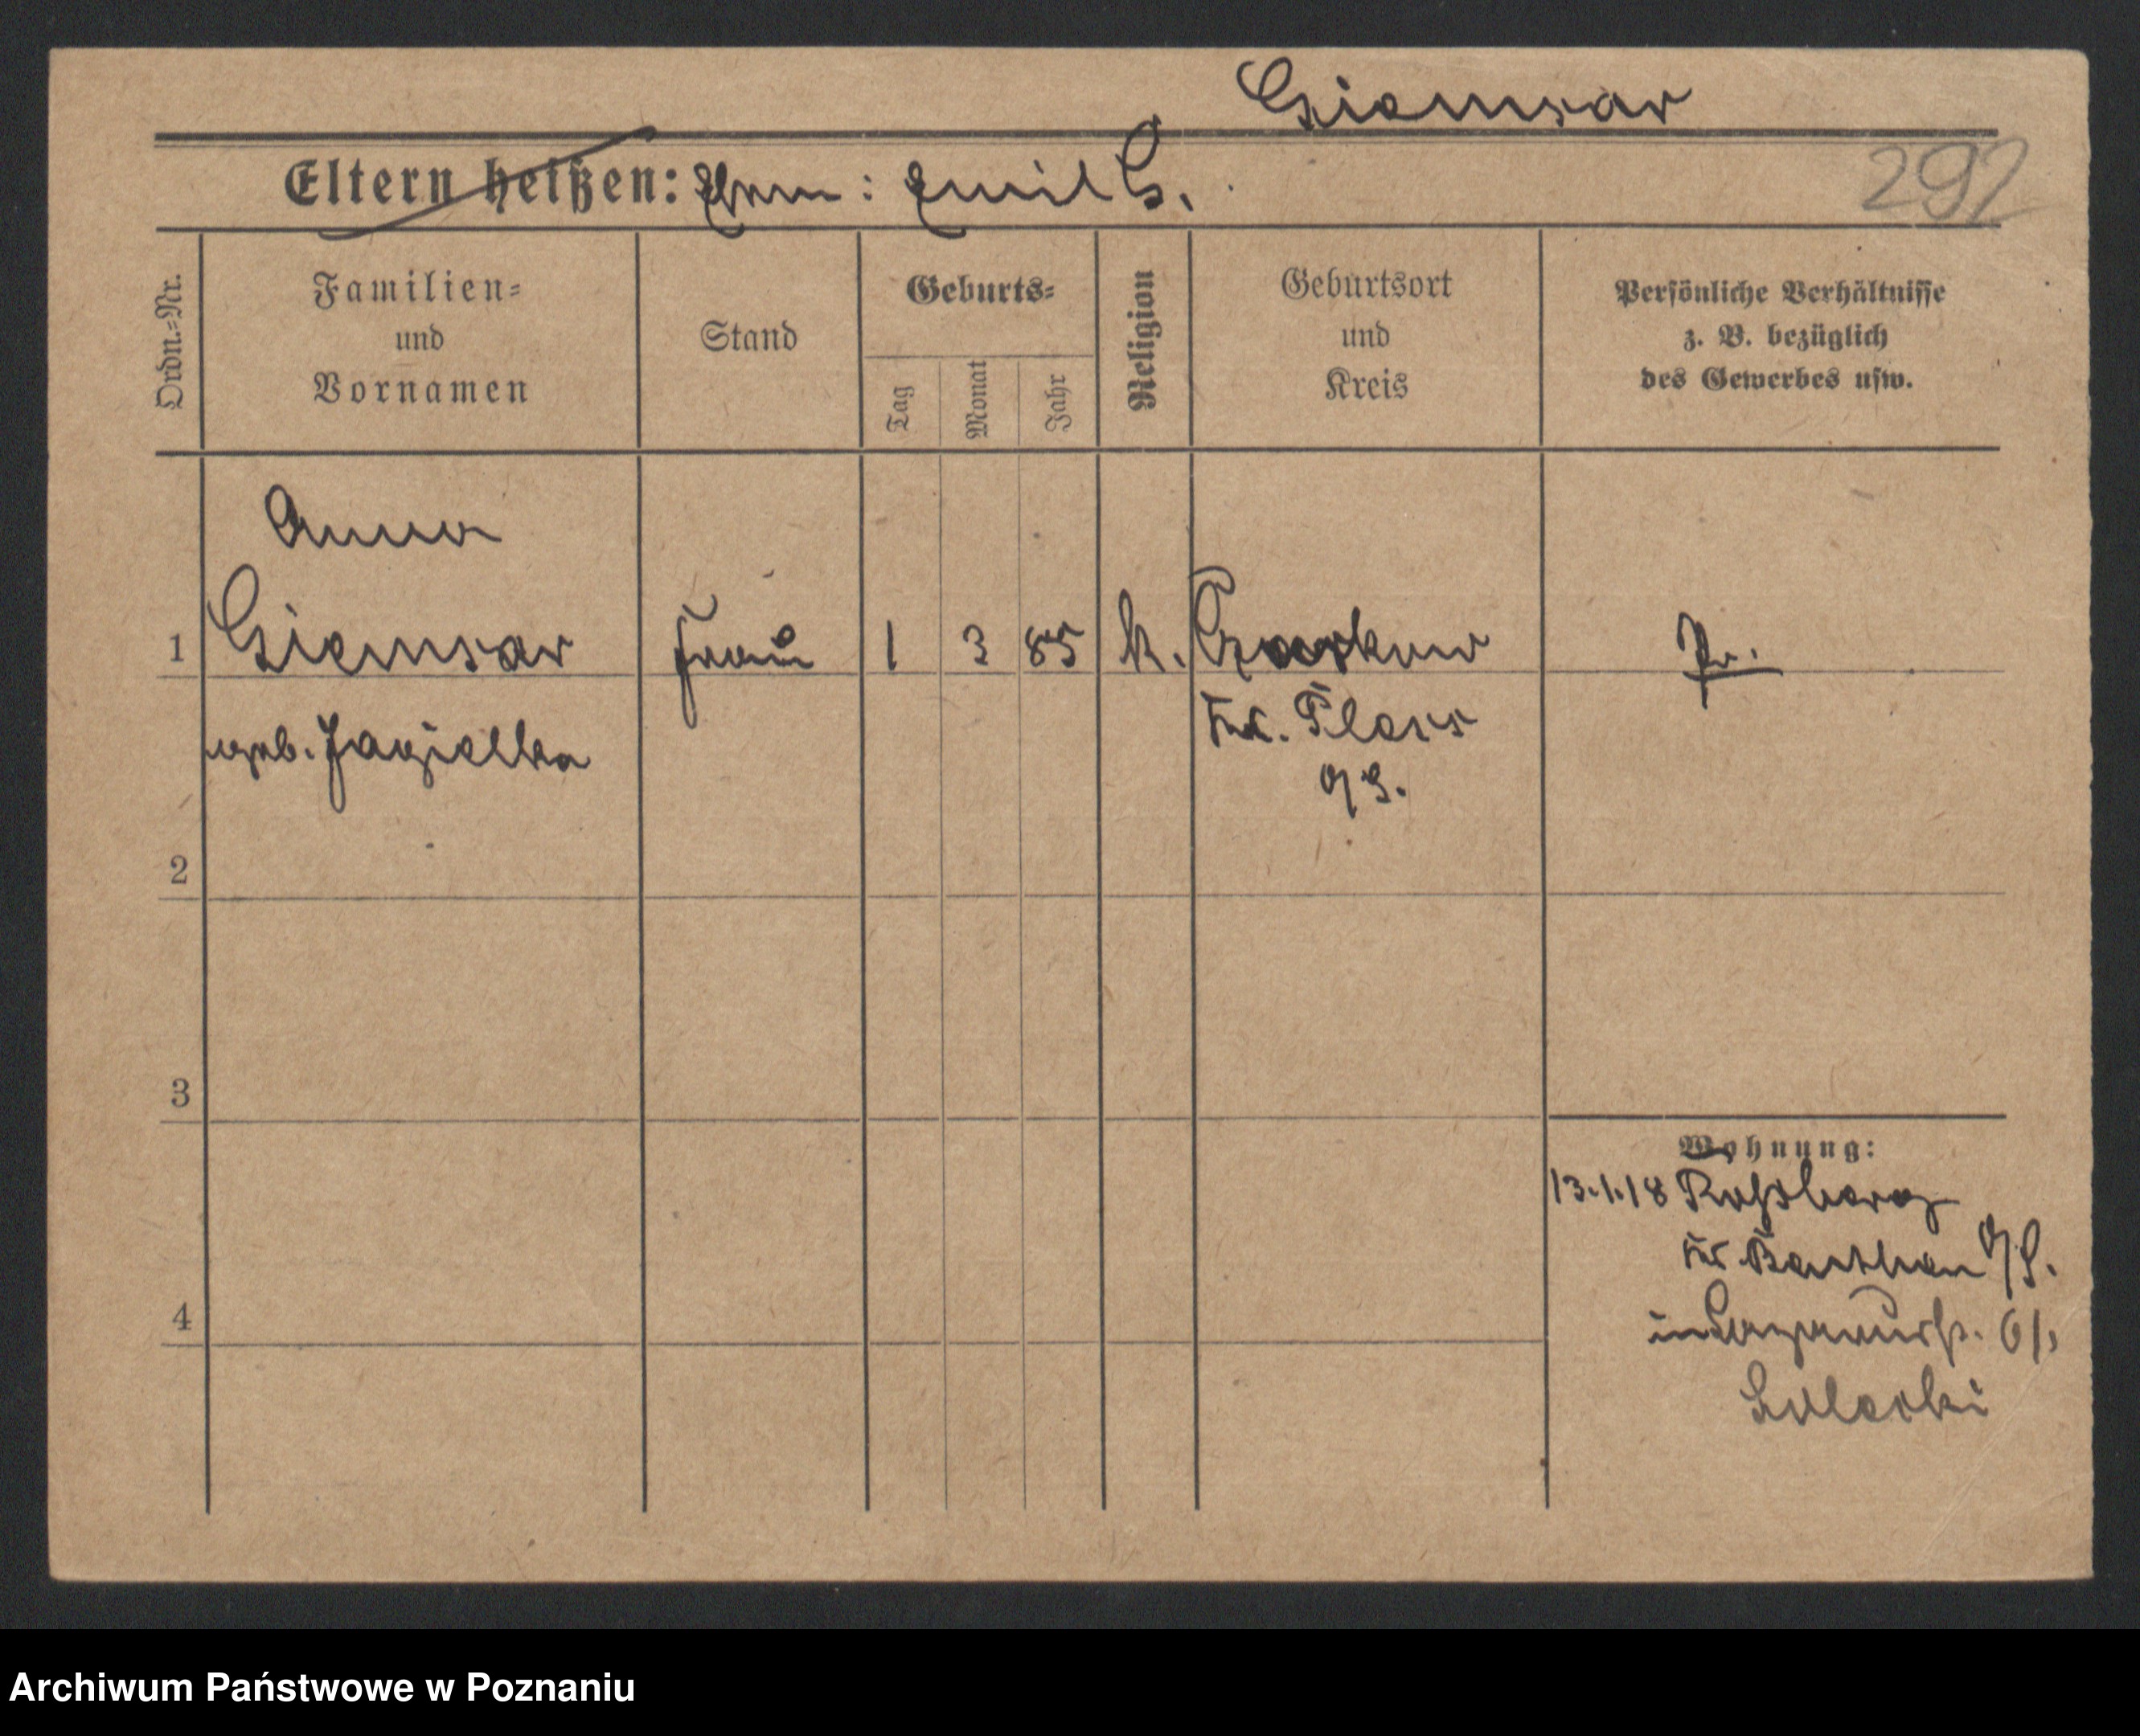 Giemsar
Eltern heißen: Ehem: Emil G.
292
Ordn.=Nr.
Familien=
und
Vornamen
Stand
Geburts=
Tag
Monat
Jahr
Religion
Geburtsort
und
Kreis
Persönliche Verhältnisse
z. B. bezüglich
des Gewerbes usw.
Anna
1 Giemsar Frau 1 3 85 k. Czarkow Pr.
geb. Jagielka Kr. Pless
O/S.
2
3
Wohnung:
13.1.18 Roßberg
Kr Beuthen O/S.
4
61,